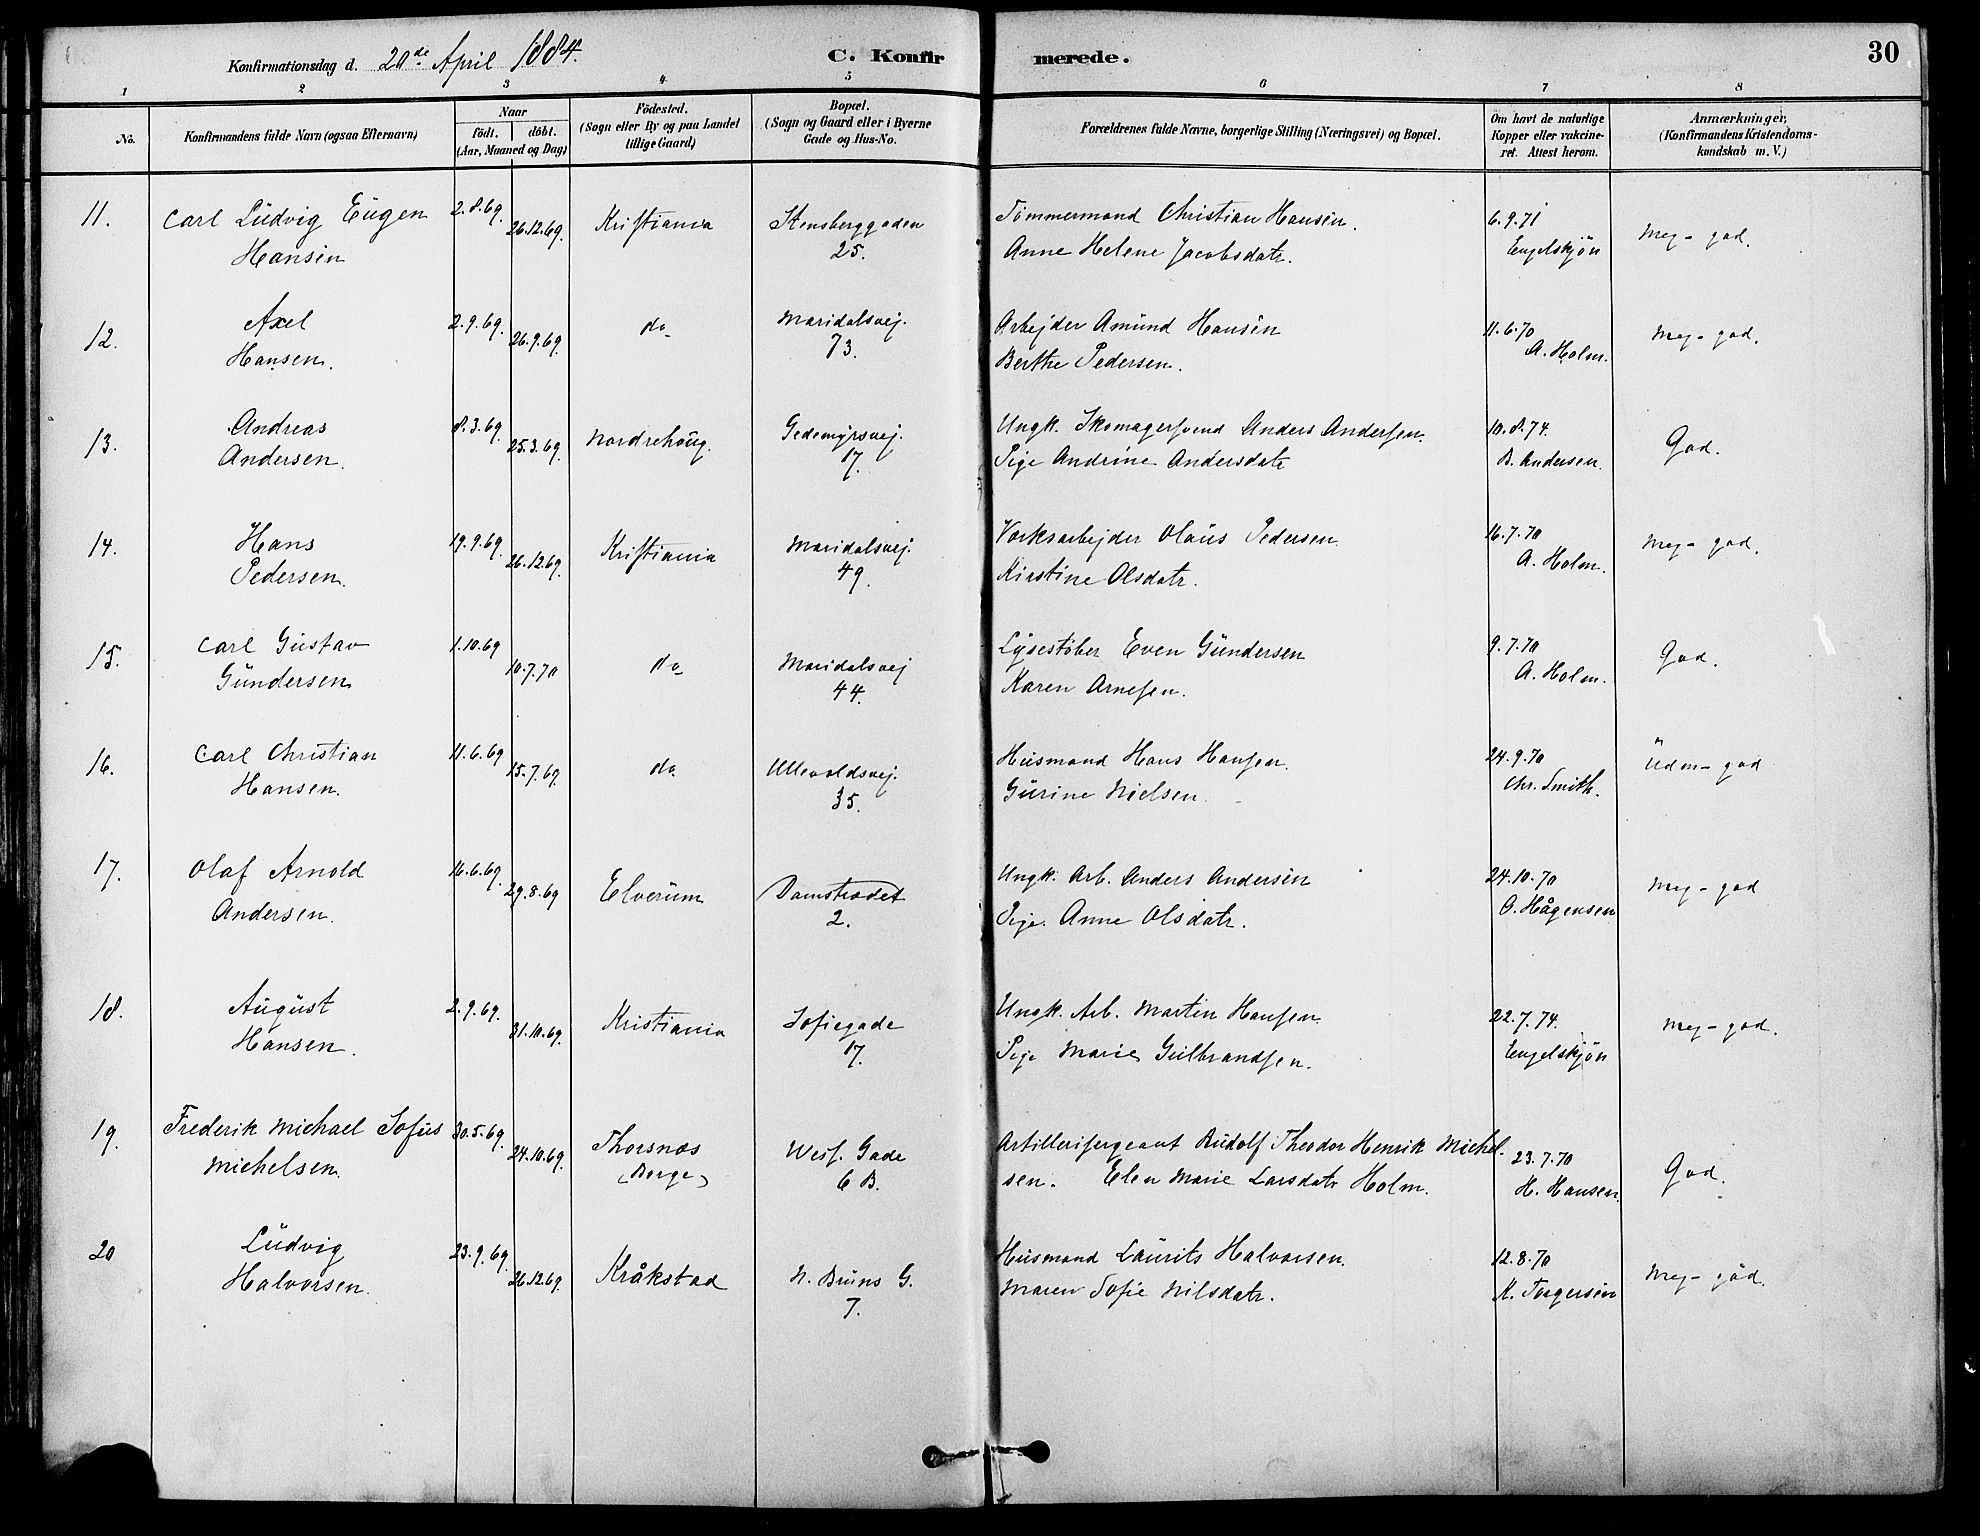 Konfirmationsdag d. 20de April 1884. C. Konfirmerede. 30
1 2 3 4 5 6 7 8
No. Konfirmandens fulde Navn (ogsaa Efternavn) Naar födt. döbt. (Aar, Maaned og Dag) Födested. (Sogn eller By og paa Landet tillige Gaard) Bopæl. (Sogn og Gaard eller i Byerne Gade og Hus-No. Forældrenes fulde Navne, borgerlige Stilling (Næringsvei) og Bopæl. Om havt de naturlige Kopper eller vakcineret. Attest herom. Anmærkninger, (Konfirmandens Kristendomskundskab m. V.)
11. Carl Ludvig Eugen 2.8.69. 26.12.69. Kristiania Stensberggaden Tömmermand Christian Hansen. 6.9.71 Meg- god.
Hansen 25. Anne Helene Jacobsdatr. Engelskjön
12. Axel 2.9.69. 26.9.69. do Maridalsvej. Arbejder Amund Hansen 11.6.70 Meg- god.
Hansen. 73. Berthe Pedersen. A. Holm.
13. Andreas 8.3.69. 25.3.69. Nordrehoug. Gedemyrsvej. Ungk. Skomagersvend Anders Andersen. 10.8.74. God.
Andersen. 17. Pige Andrine Andersdatr B. Andersen.
14. Hans 19.9.69. 26.12.69. Kristiania Maridalsvej. Værksarbejder Olaus Pedersen. 16.7.70 Meg- god.
Pedersen. 49. Kirstine Olsdatr. A. Holm.
15. Carl Gustav 1.10.69 10.7.70 do Maridalsvej Lysestöber Even Gundersen 9.7.70 God.
Gundersen 44. Karen Arnesen. A. Holm.
16. Carl Christian 11.6.69 15.7.69. do. Ullevoldsvej. Husmand Hans Hansen. 24.9.70 Udm- god
Hansen. 35. Gurine Nielsen. Chr. Smith.
17. Olaf Arnold 16.6.69. 29.8.69 Elverum Damstrædet Ungk. Arb. Anders Andersen 24.10.70 Meg- god
Andersen. 2. Pige. Anne Olsdatr. O. Hågensen
18. August 2.9.69. 31.10.69. Kristiania Sofiegade Ungk. Arb. Martin Hansen. 22.7.74. Meg- god.
Hansen. 17. Pige Marie Gulbrandsen. Engelskjön
19. Frederik Michael Sofus 30.5.69. 24.10.69. Thorsnæs Wess. Gade Artillerisergeant Rudolf Theodor Henrik Michel- 23.7.70 God.
Michelsen. (Borge) 6 B. sen. Elen Marie Larsdatr Holm. H. Hansen.
20 Ludvig 23.9.69. 26.12.69. Kråkstad N. Bruns G. Husmand Laurits Halvorsen. 12.8.70 Meg- god.
Halvorsen. 7. Maren Sofie Nilsdatr. K. Torgersen